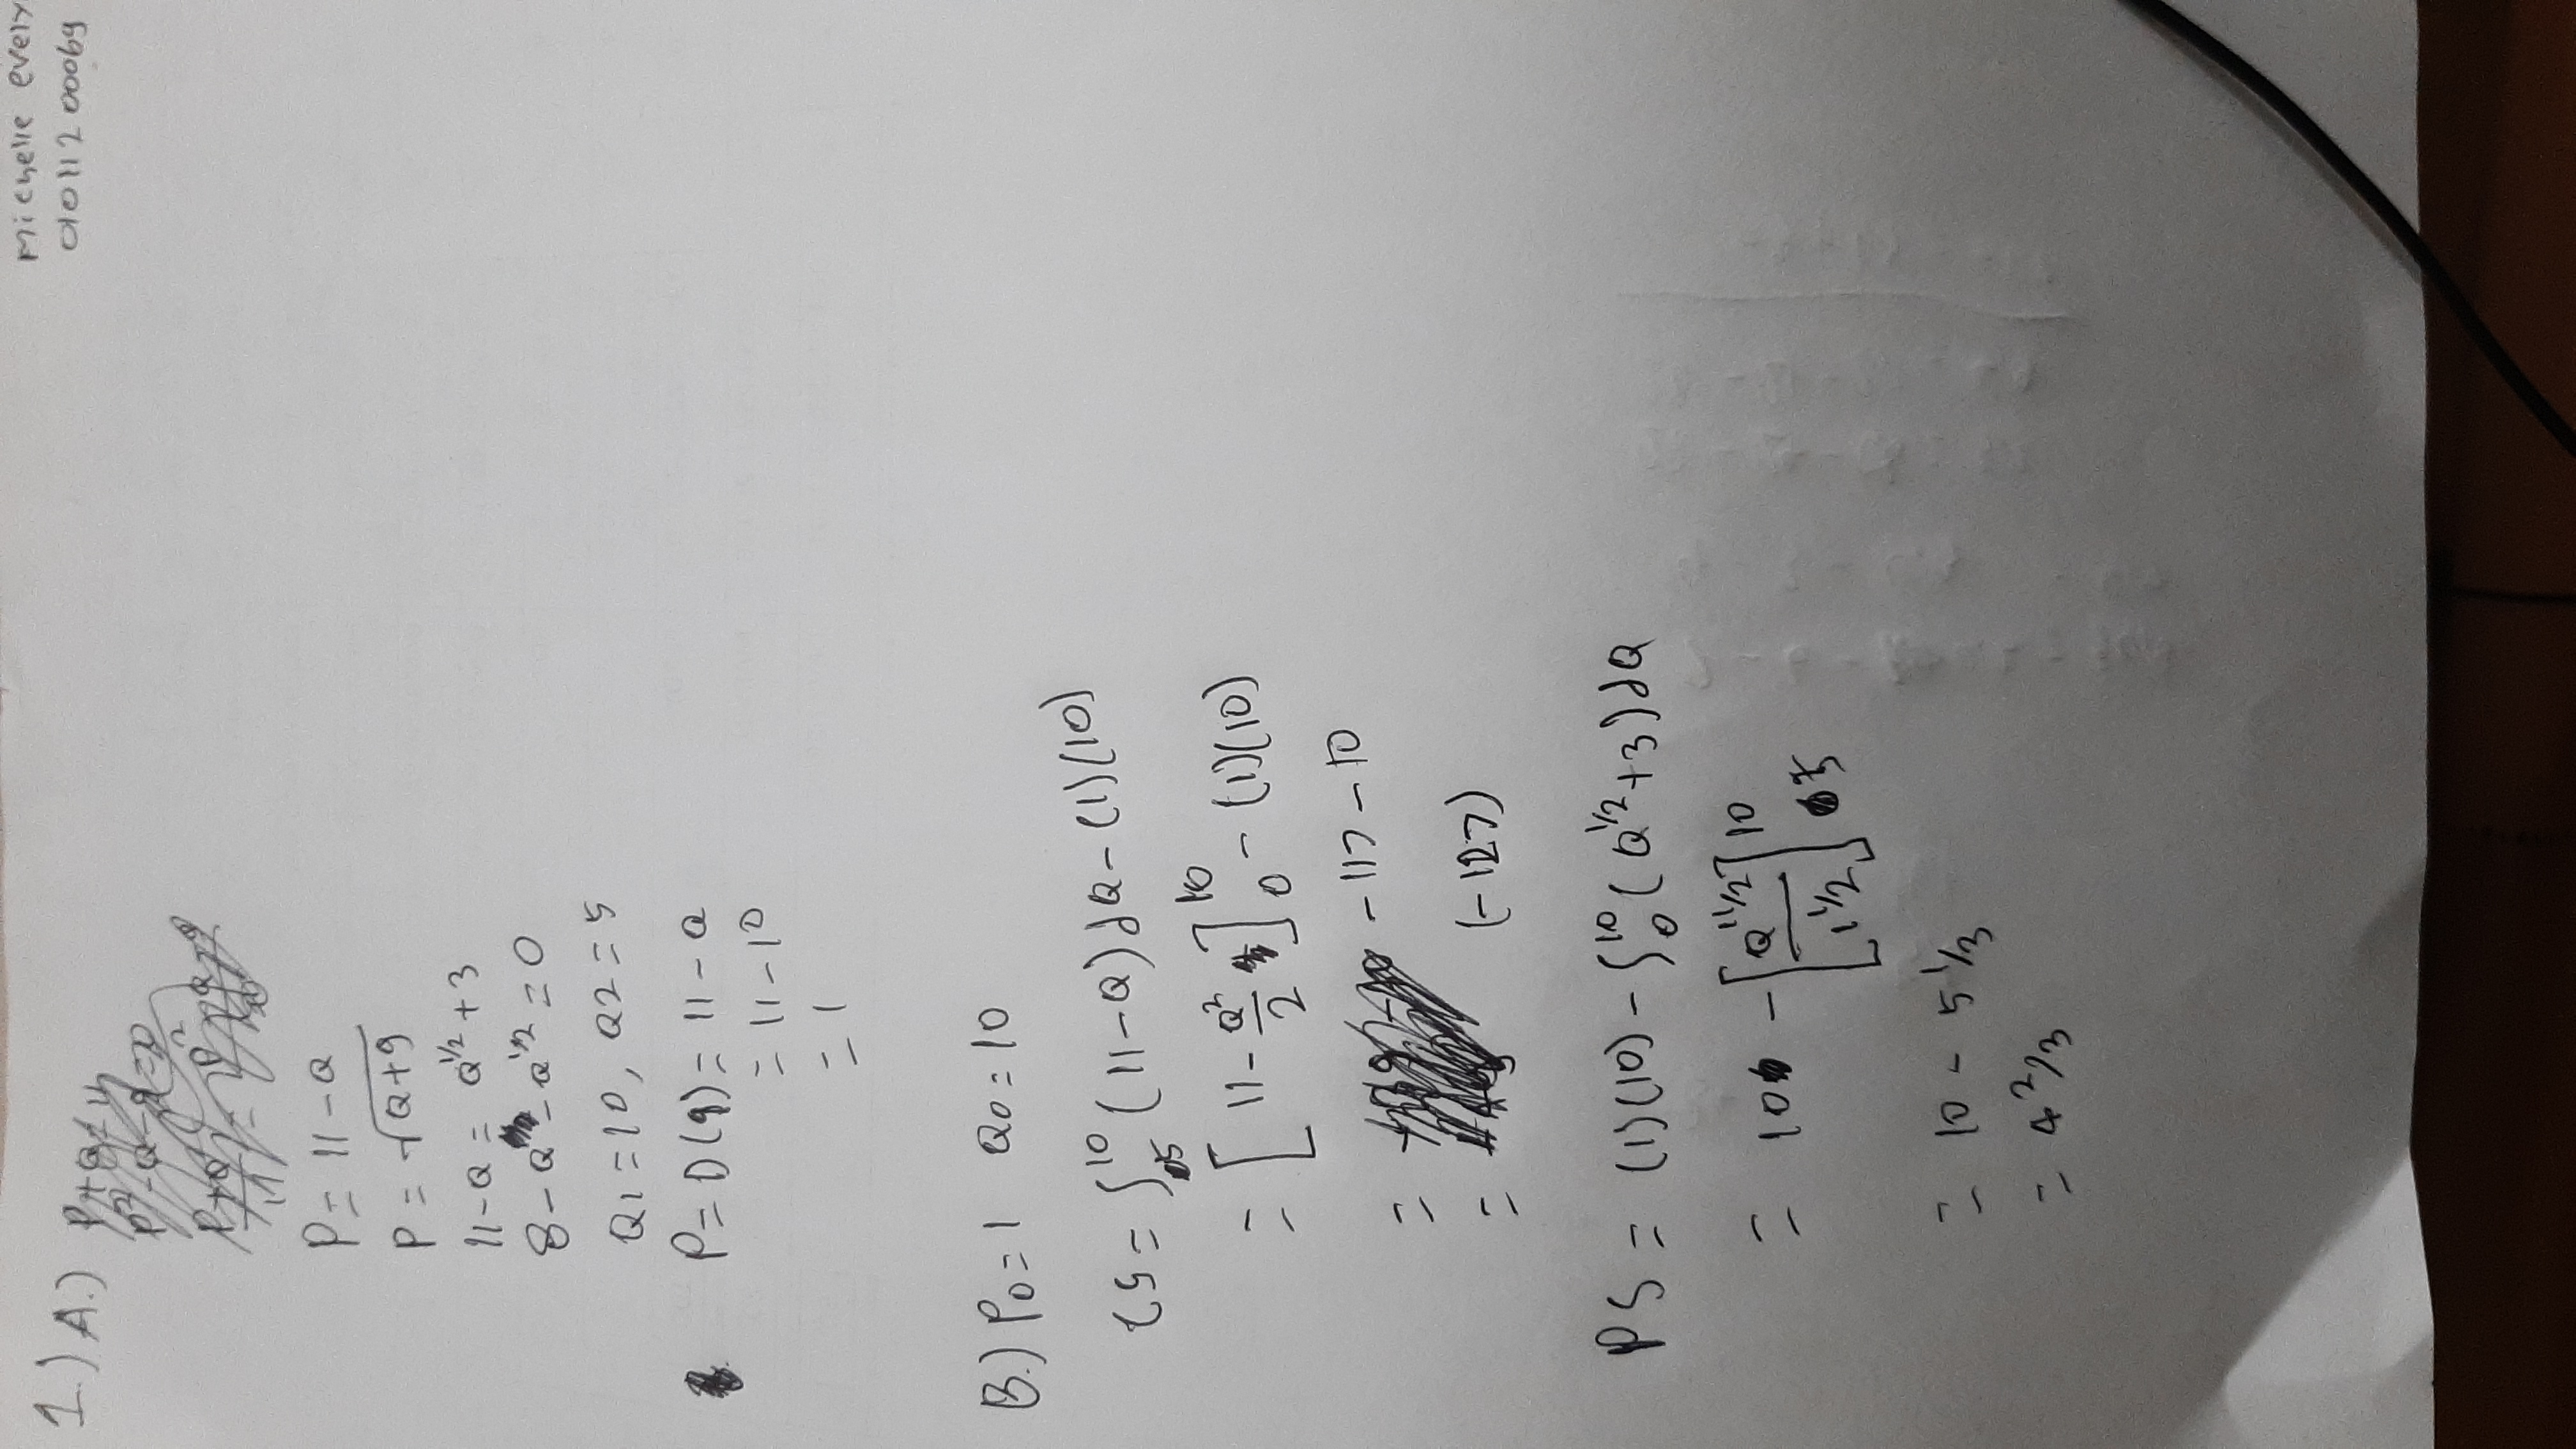 Michelle evely
01011200069
1.) A.)
P = 11 - Q
P = √Q+9
11-Q = Q^1/2 + 3
8 - Q - Q^1/2 = 0
Q1 = 10, Q2 = 5
P = D(q) = 11 - Q
= 11 - 10
= 1
B.) P0 = 1 Q0 = 10
CS = ∫5^10 (11-Q) dQ - (1)(10)
= [11 - Q²/2]0^10 - (1)(10)
= -117 - 10
= (-127)
PS = (1)(10) - ∫0^10 (Q^1/2 + 3) dQ
= 10 - [Q^1 1/2 / 1 1/2]5^10
= 10 - 5 1/3
= 4 2/3